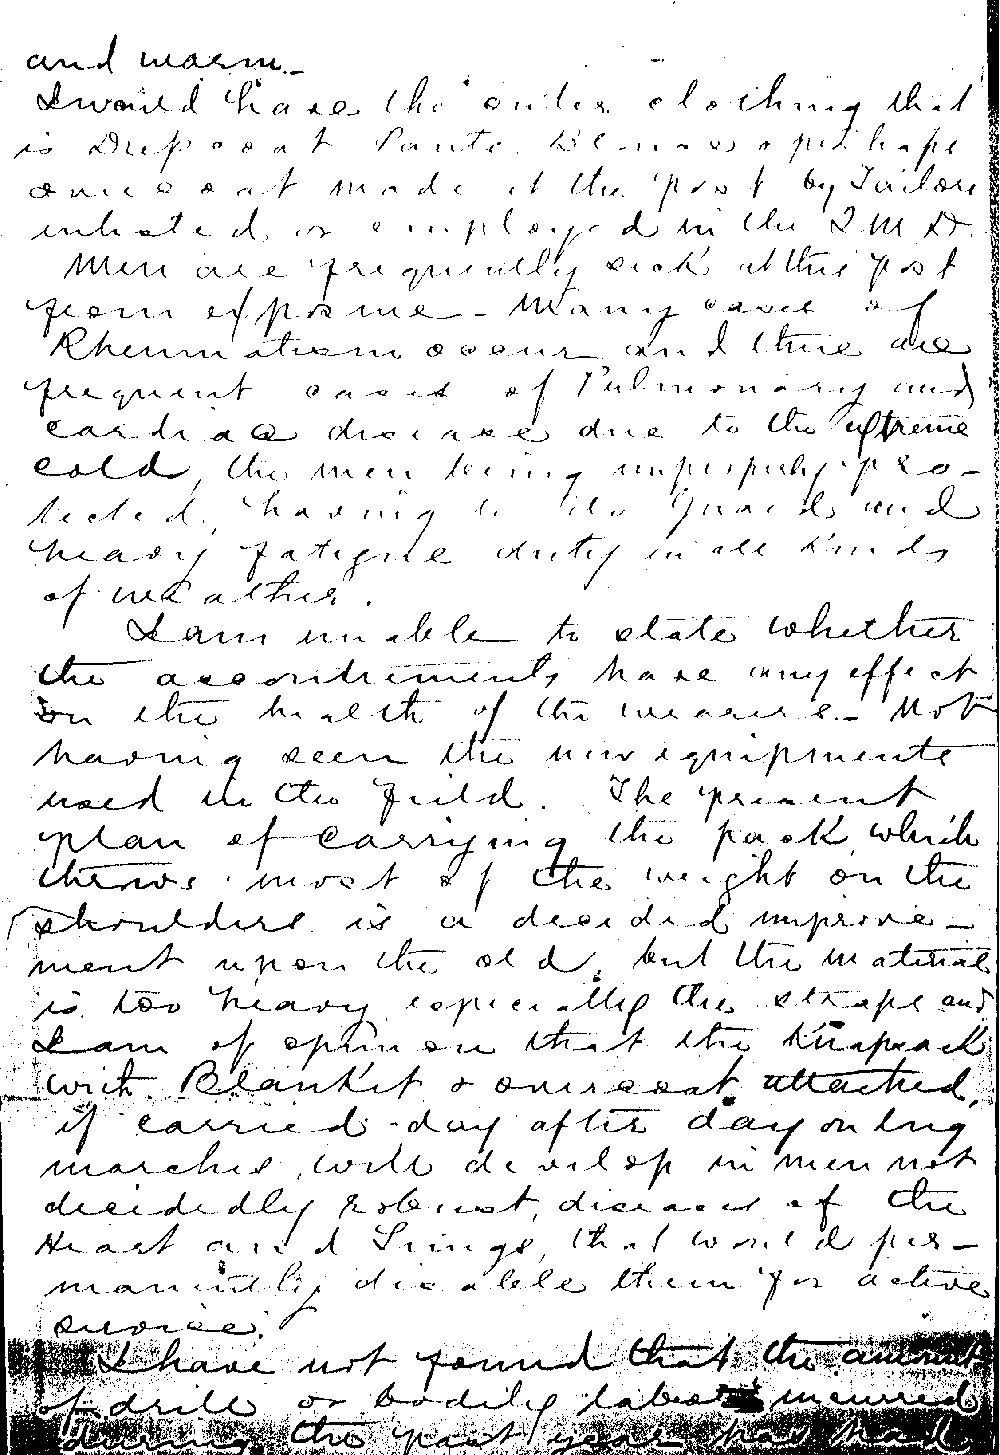 and warm.
I would have the outer clothing that
is Dress coat Pants, Blouses & perhaps
overcoat made at the post by Tailors
enlisted or employed in the Q M D.
Men are frequently sick at this post
from exposure - Many cases of
Rheumatism occur and there are
frequent cases of Pulmonary and
cardiac disease due to the extreme
cold, the men being improperly pro-
tected, having to do guard and
heavy fatigue duty in all kinds
of weather.
I am unable to state whether
the accoutrements have any effect
on the health of the wearers - Not
having seen the new equipments
used in the field. The present
plan of carrying the pack which
throws most of the weight on the
shoulders is a decided improve-
ment upon the old, but the material
is too heavy especially the straps and
I am of opinion that the Knapsack
with Blanket & overcoat attached,
if carried day after day on long
marches, will develop in men not
decidedly robust, diseases of the
Heart and Lungs, that would per-
manently disable them for active
service.
I have not found that the amount
of drill or bodily labor incurred
during the past year has had